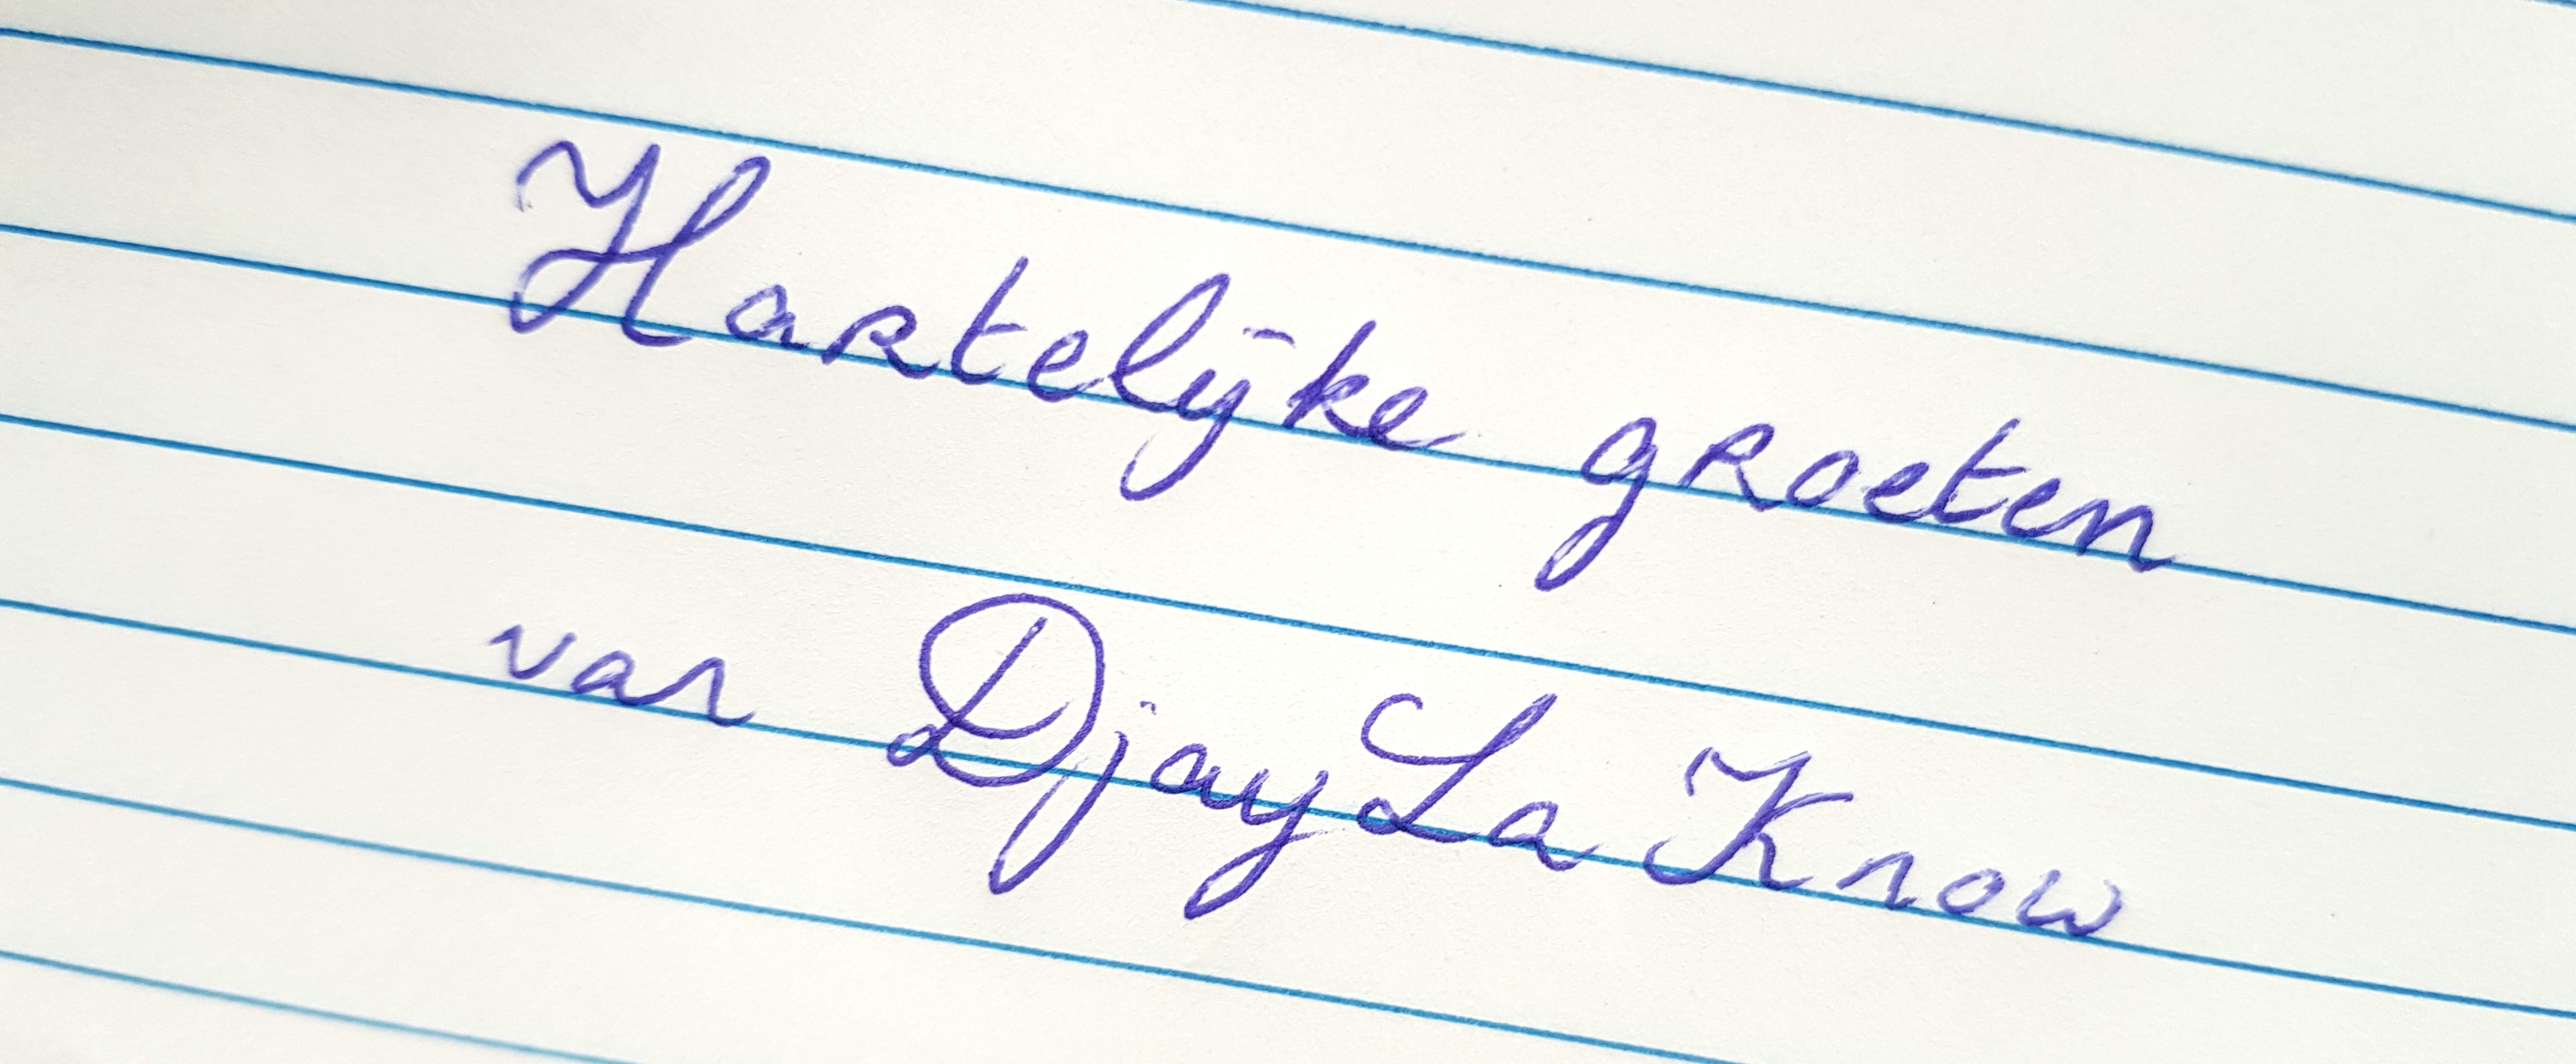 Hartelijke groeten
van DjayLa Know